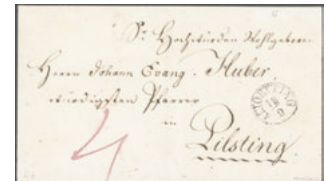 Sr. Hochwürden Wohlgeboren
Herrn Johann Evang. Huber,
würdigsten Pfarrer
in
Pilsting
18
9
4